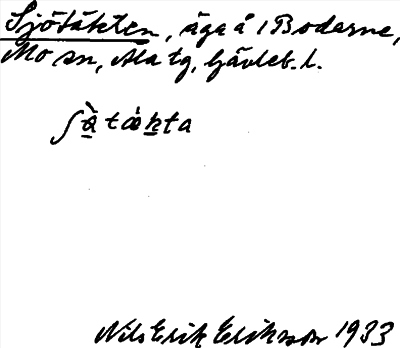 Sjötäkten, äga å i Boderne,
Mo sn, Ala tg, Gävleb. l.
ʃɑ̱̀ tǽḵta
Nils Erik Eriksson 1933